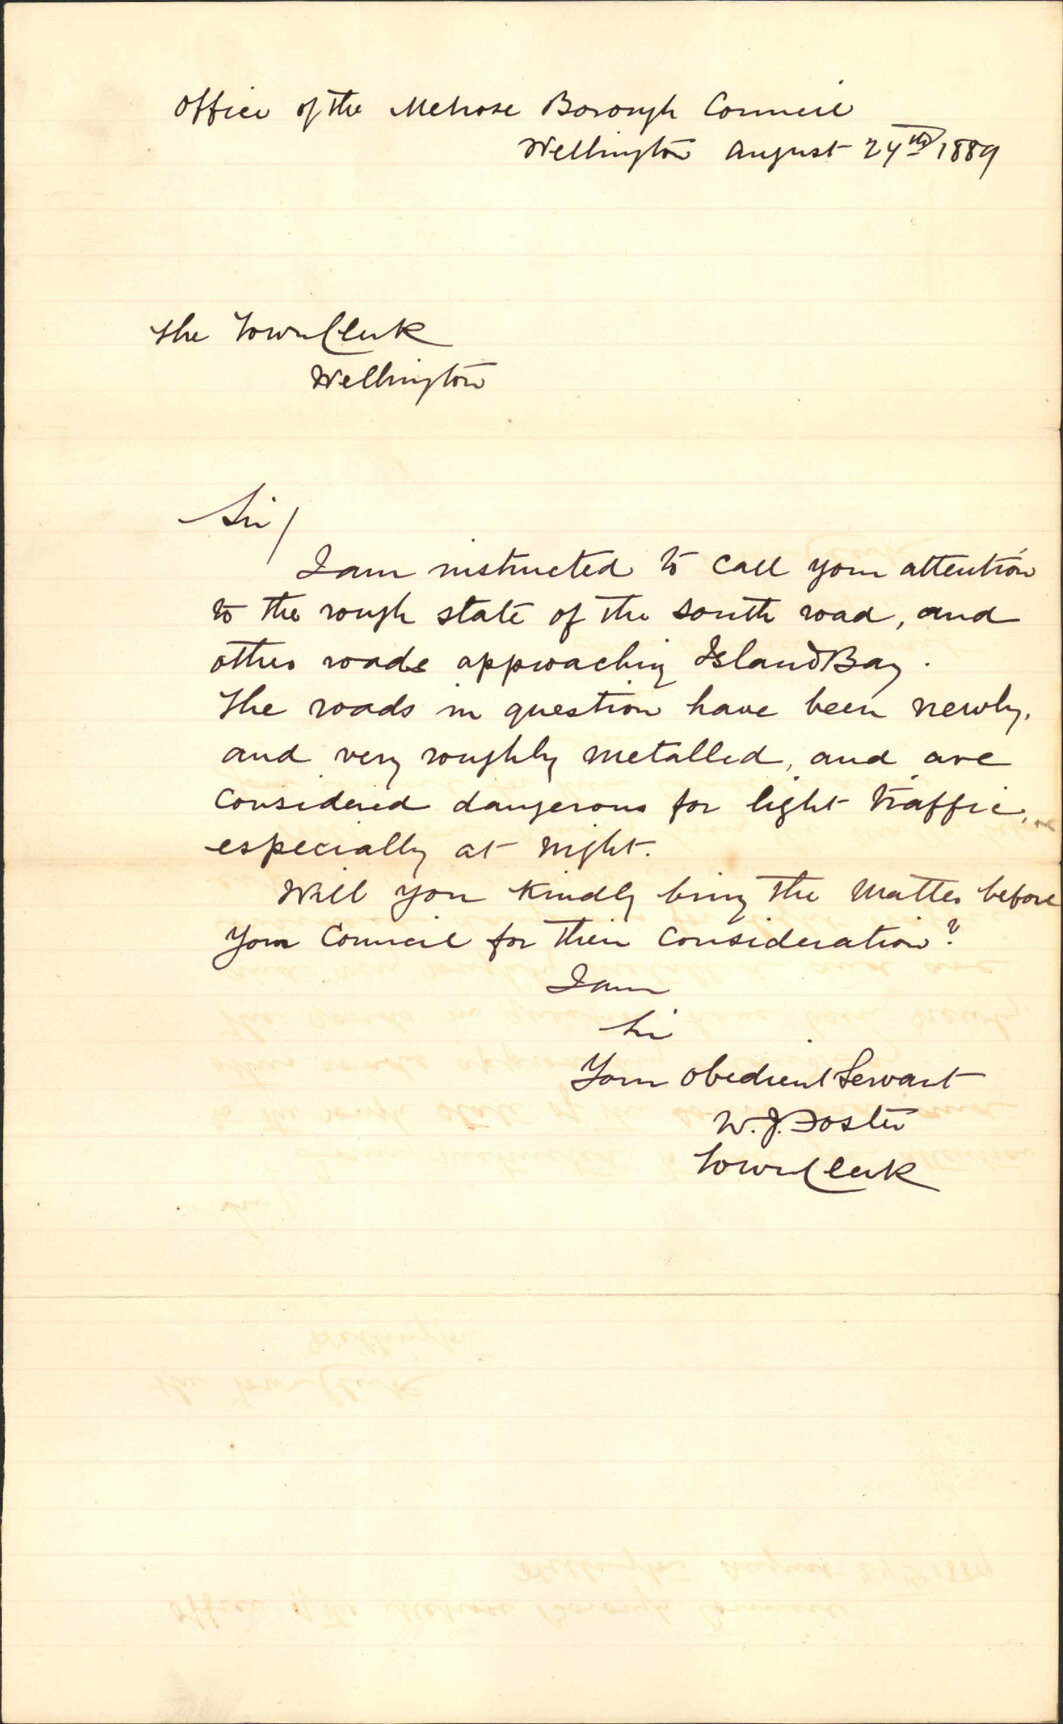 Office of the Melrose Borough Council
Wellington August 24th 1889
The Town Clerk
Wellington
Sir/
I am instructed to call your attention
to the rough state of the south road, and
other roads approaching Island Bay.
The roads in question have been newly,
and very roughly metalled, and are
considered dangerous for light traffic,
especially at night.
Will you kindly bring the matter before
your Council for their consideration?
I am
Sir
Your obedient Servant
W. J. Foster
Town Clerk